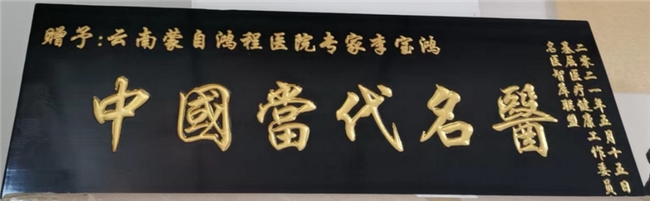 赠予:云南蒙自鸿程医院专家李宝鸿
中國當代名醫
二零二一年五月十五日
基层医疗健康工作委员
名医智库联盟